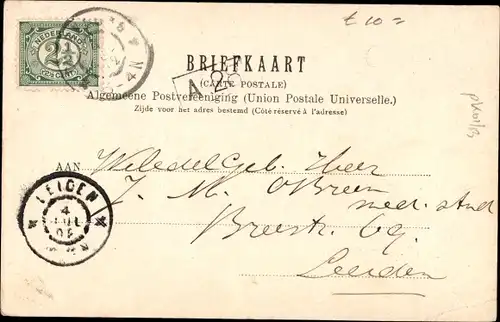 £ 10 =
NEDERLAND
2½
CENT
BRIEFKAART
(CARTE POSTALE)
Algemeene Postvereeniging (Union Postale Universelle.)
Zijde voor het adres bestemd (Côté réservé à l'adresse)
AAN
WelEdelGeb. Heer
J. M. O'Breen
med. stud
Breestr. 69.
Leiden
LEIDEN
4
JUL